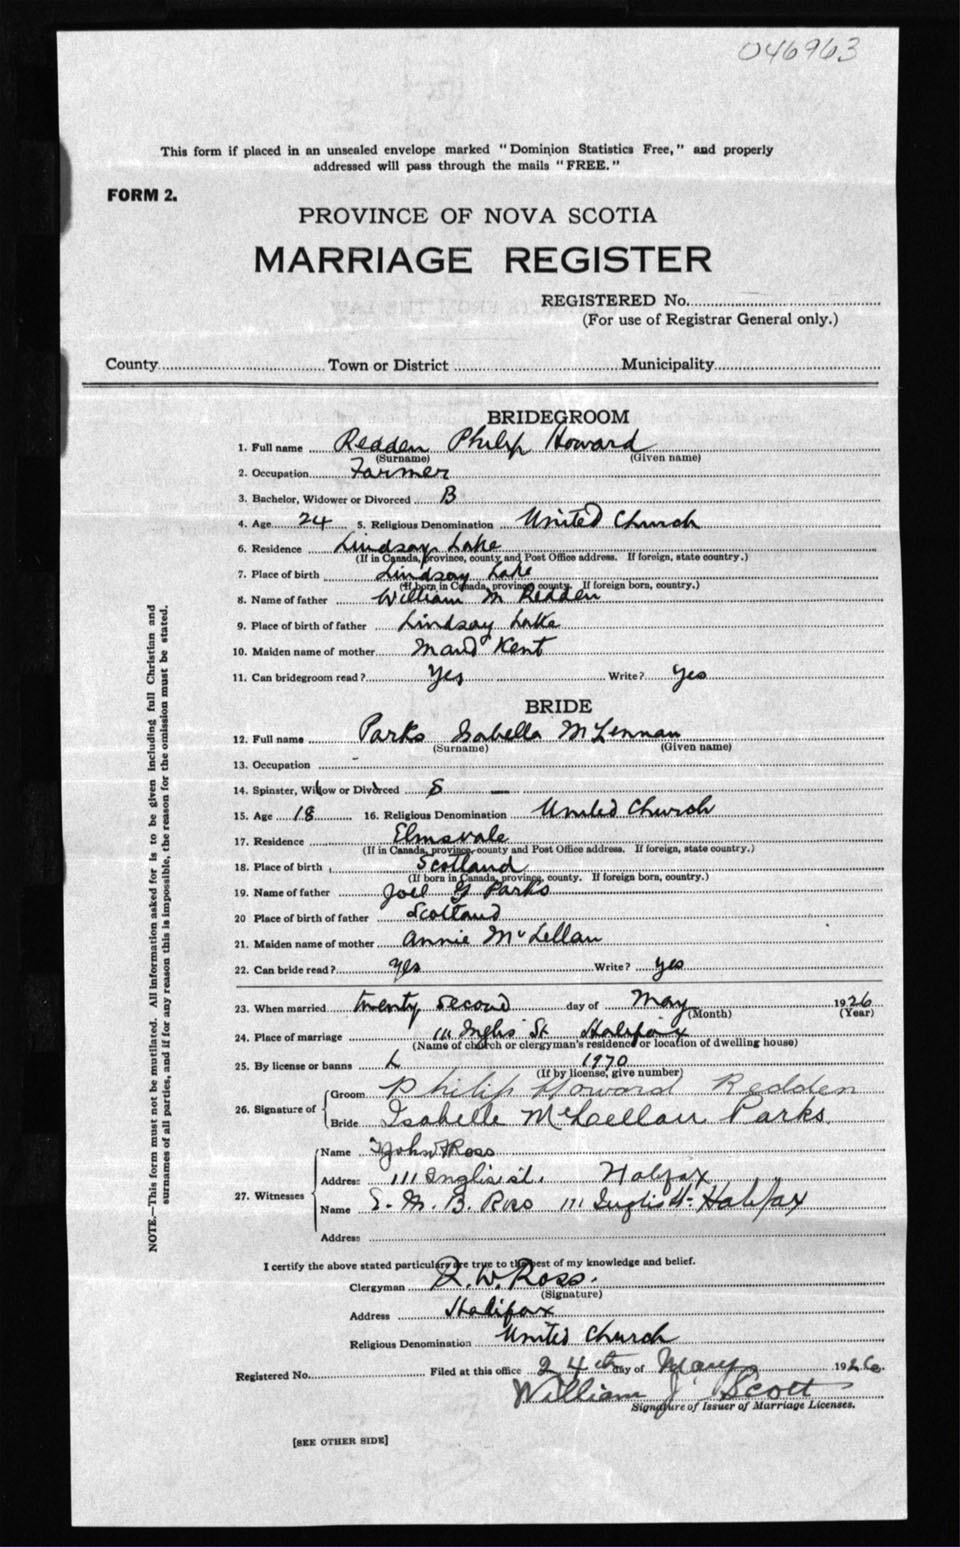 046963
This form if placed in an unsealed envelope marked "Dominion Statistics Free," and properly
addressed will pass through the mails "FREE."
FORM 2.
PROVINCE OF NOVA SCOTIA
MARRIAGE REGISTER
REGISTERED No.
(For use of Registrar General only.)
County Town or District Municipality
BRIDEGROOM
1. Full name Redden Philip Howard
(Surname) (Given name)
2. Occupation Farmer
3. Bachelor, Widower or Divorced B
4. Age 24 5. Religious Denomination United Church
6. Residence Lindsay Lake
(If in Canada, province, county and Post Office address. If foreign, state country.)
7. Place of birth Lindsay Lake
(If born in Canada, province, county. If foreign born, country.)
8. Name of father William M Redden
9. Place of birth of father Lindsay Lake
10. Maiden name of mother Maud Kent
11. Can bridegroom read? Yes Write? Yes
BRIDE
12. Full name Parks Isabella McLennan
(Surname) (Given name)
13. Occupation -
14. Spinster, Widow or Divorced S —
15. Age 18 16. Religious Denomination United Church
17. Residence Elmsvale
(If in Canada, province, county and Post Office address. If foreign, state country.)
18. Place of birth Scotland
(If born in Canada, province, county. If foreign born, country.)
19. Name of father Joel G Parks
20 Place of birth of father Scotland
21. Maiden name of mother Annie McLellan
22. Can bride read? Yes Write? Yes
23. When married twenty second day of May 1926
(Month) (Year)
24. Place of marriage 111 Inglis St Halifax
(Name of church or clergyman's residence or location of dwelling house)
25. By license or banns L 1970
(If by license, give number)
26. Signature of Groom Philip Howard Redden
Bride Isabelle McLellan Parks
27. Witnesses Name John Ross
Address 111 Inglis st. Halifax
Name E. M. B. Ross 111 Inglis St. Halifax
Address
I certify the above stated particulars are true to the best of my knowledge and belief.
Clergyman Q. W. Ross.
(Signature)
Address Halifax
Religious Denomination United Church
Registered No. Filed at this office 24th day of May 1926.
William J. Scott
Signature of Issuer of Marriage Licenses.
[SEE OTHER SIDE]
NOTE.—This form must not be mutilated. All information asked for is to be given including full Christian and
surnames of all parties, and if for any reason this is impossible, the reason for the omission must be stated.